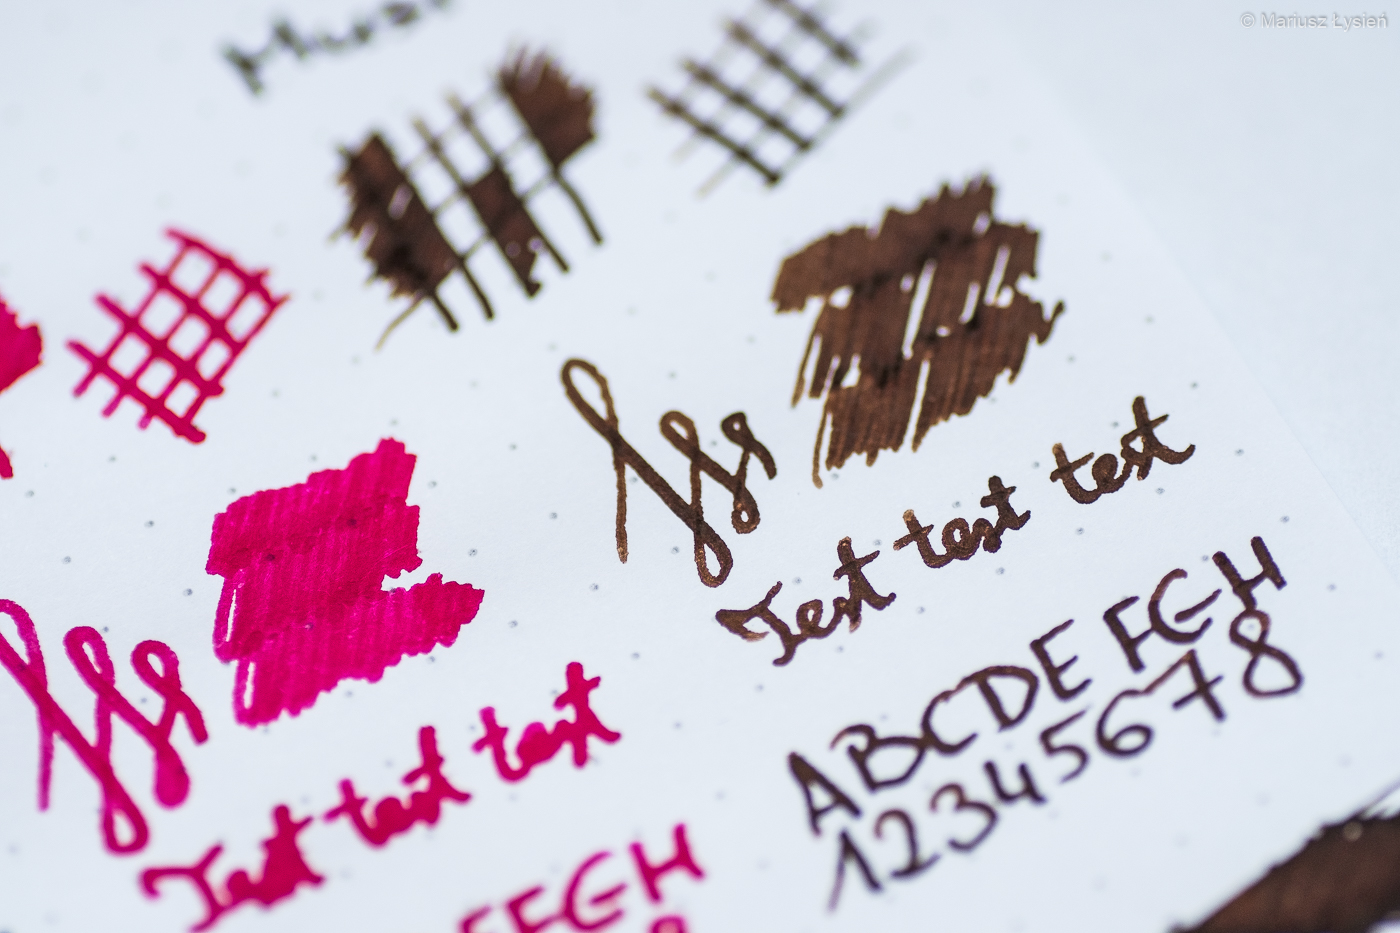 © Mariusz Łysień
Test test test
ABCDE FGH
12345678
Test test test
FGH